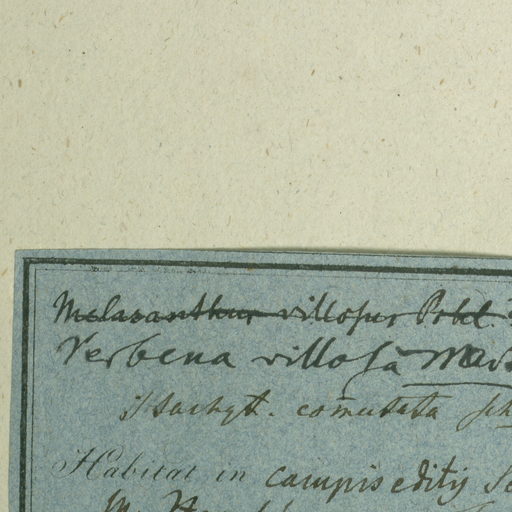 Melasanthus villosus Pohl.
Verbena villosa Mart
Stachyt. comutata Sch
Habitat in campis editis